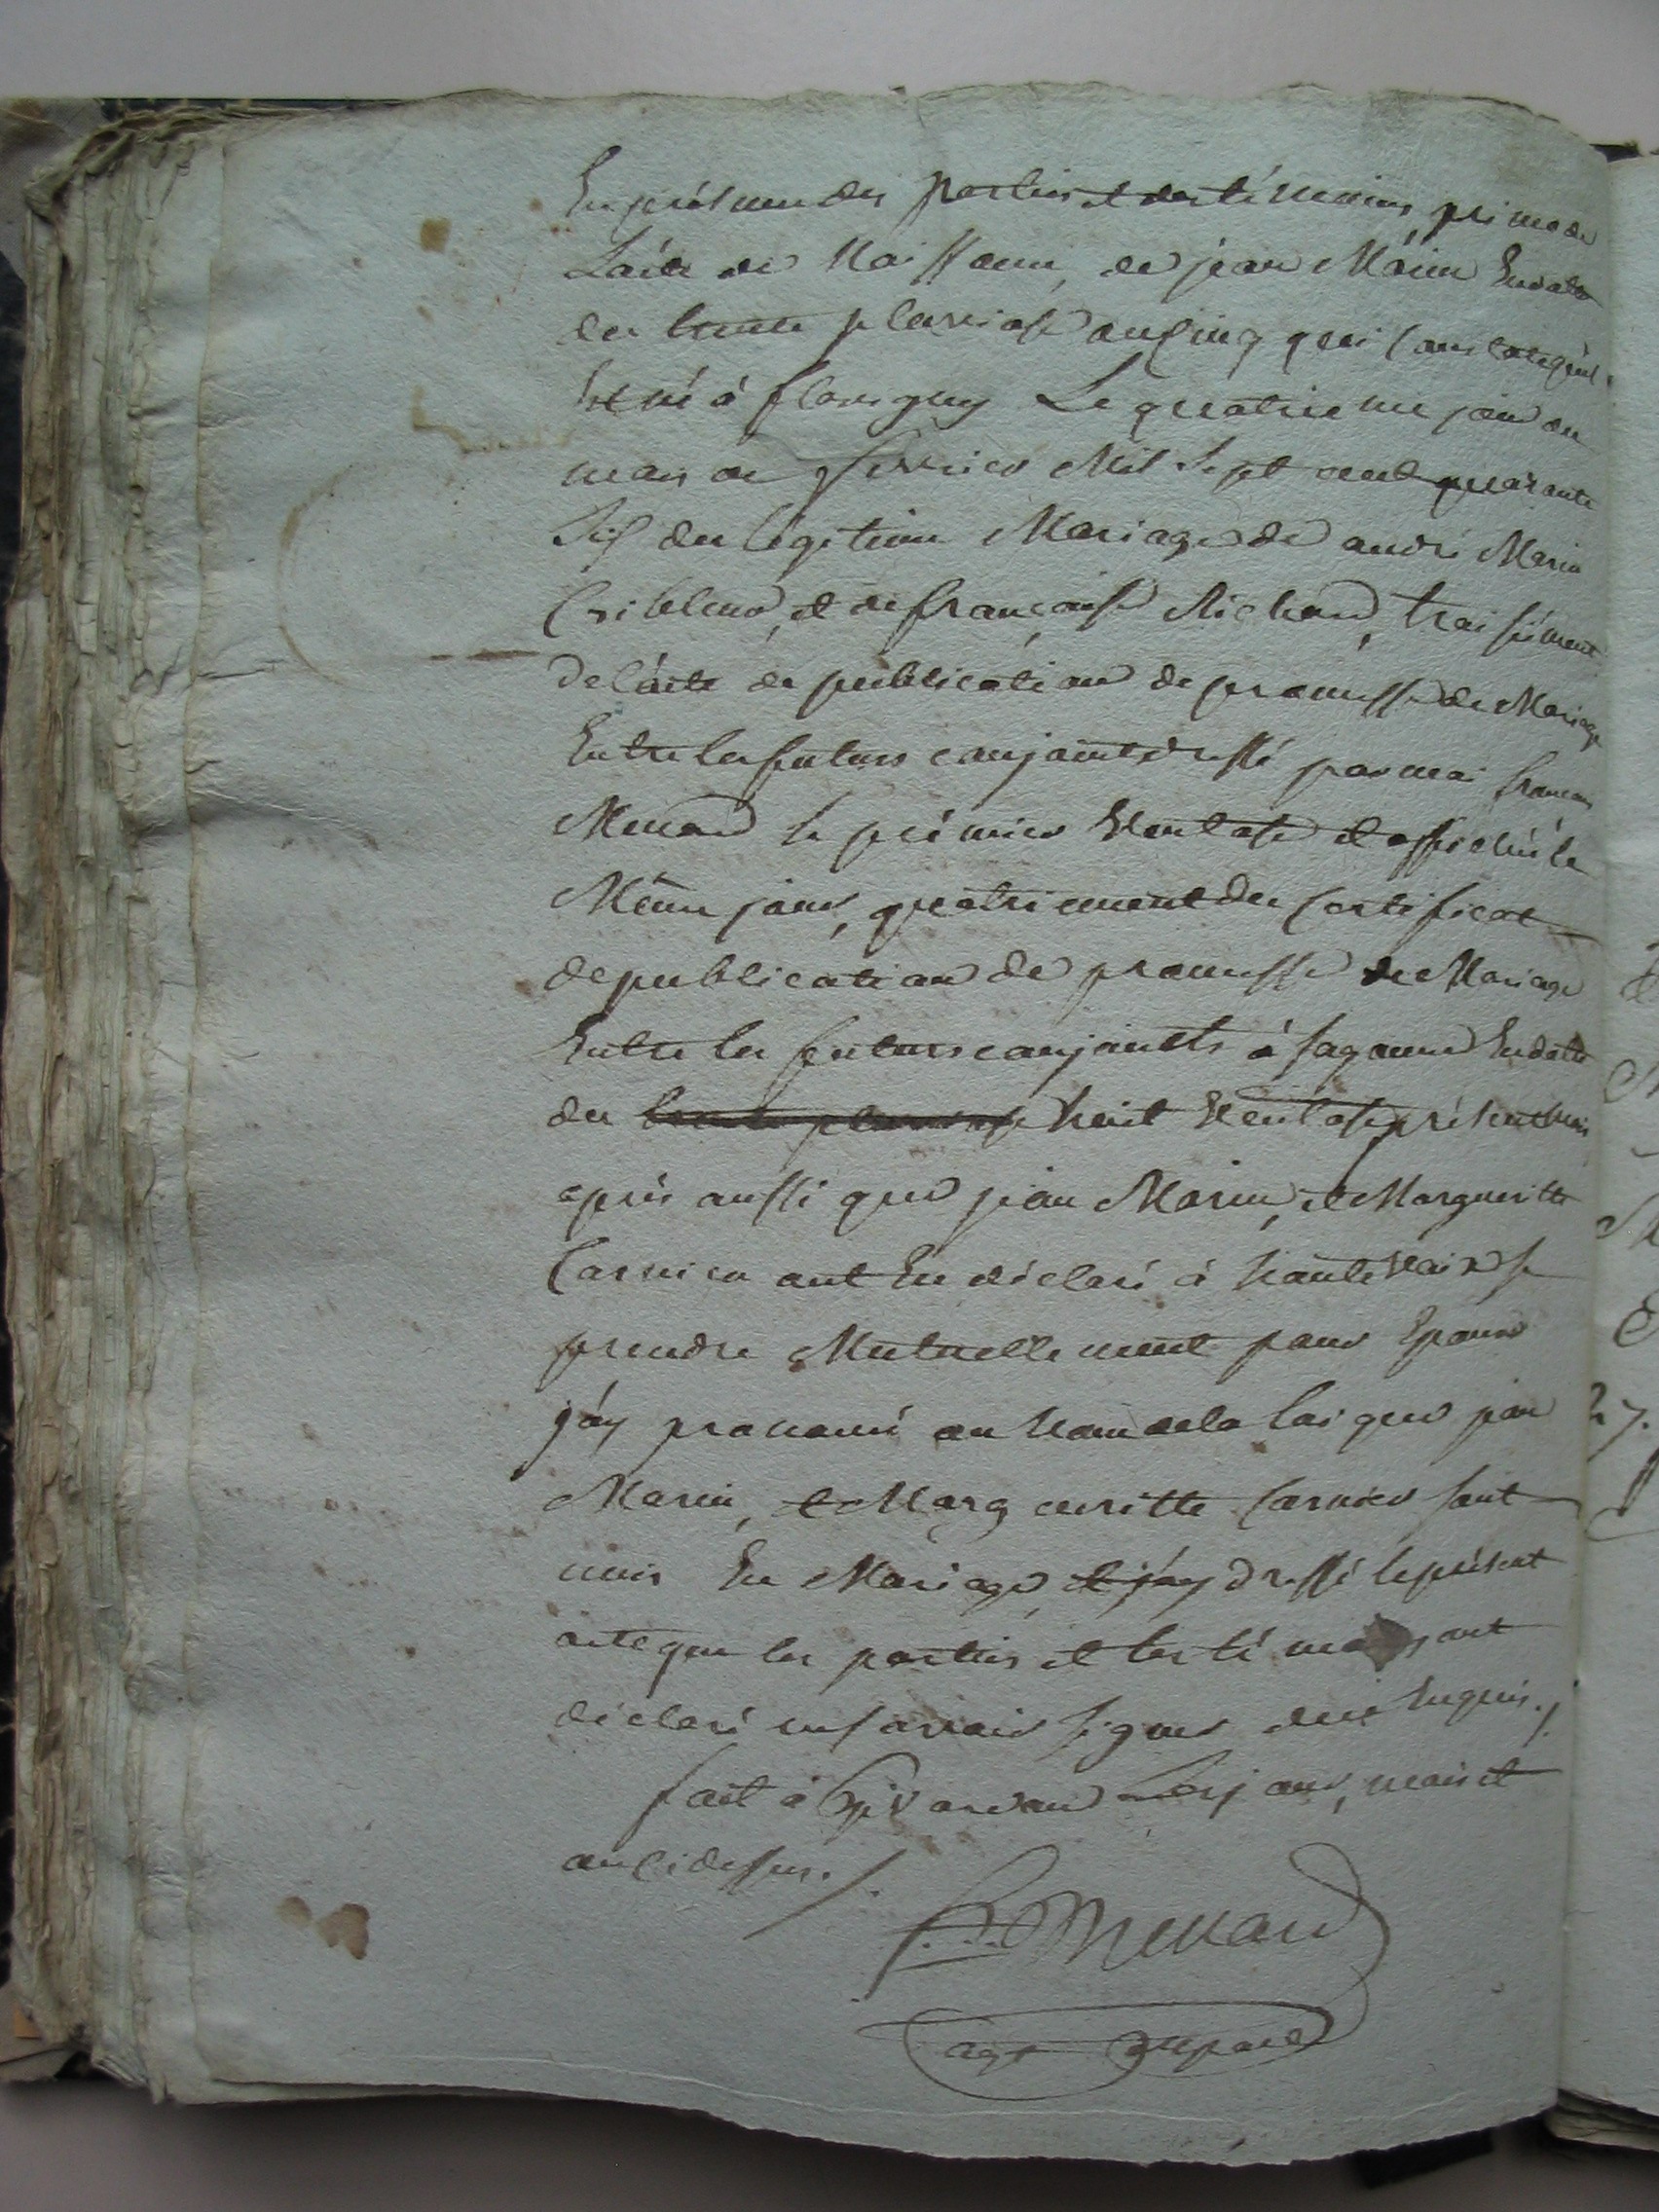 En présence des parties et des témoins primo de
L'acte de Naissance, de jean Marin En date
du trente pluviose an cinq qui constate qu'il
est né à flavigny Le quatrieme jour du
mois de fevrier Mil Sept cent quarante
Six du légitime Mariage de andré Marin
Cribleur, et de françoise Richard, troisiément
De l'acte de publication de promesse de Mariage
Entre les futurs conjoint dressé par moi françois
Menard le prémier Ventose et affiché le
Même jour, quatriement du Certificat
de publication de promesse de Mariage
Entre les futurs conjoints à sagonne En date
du trente pluviose huit Ventose présent mois
après aussi que jean Marin, et Margueritte
Carnien ont Eu déclaré à haute voix se
prendre Mutuellement pour Epoux
j'ay prononcé au Nom de la loi que jean
Marin, et Margueritte Carnien sont
unis En Mariage, et j'ay dressé le présent
acte que les parties et les témoins ont
déclaré ne savoir signer de ce Enquis./.
fait à Givardon Les jour, mois et
an ci dessus./.
f. Menard
agt